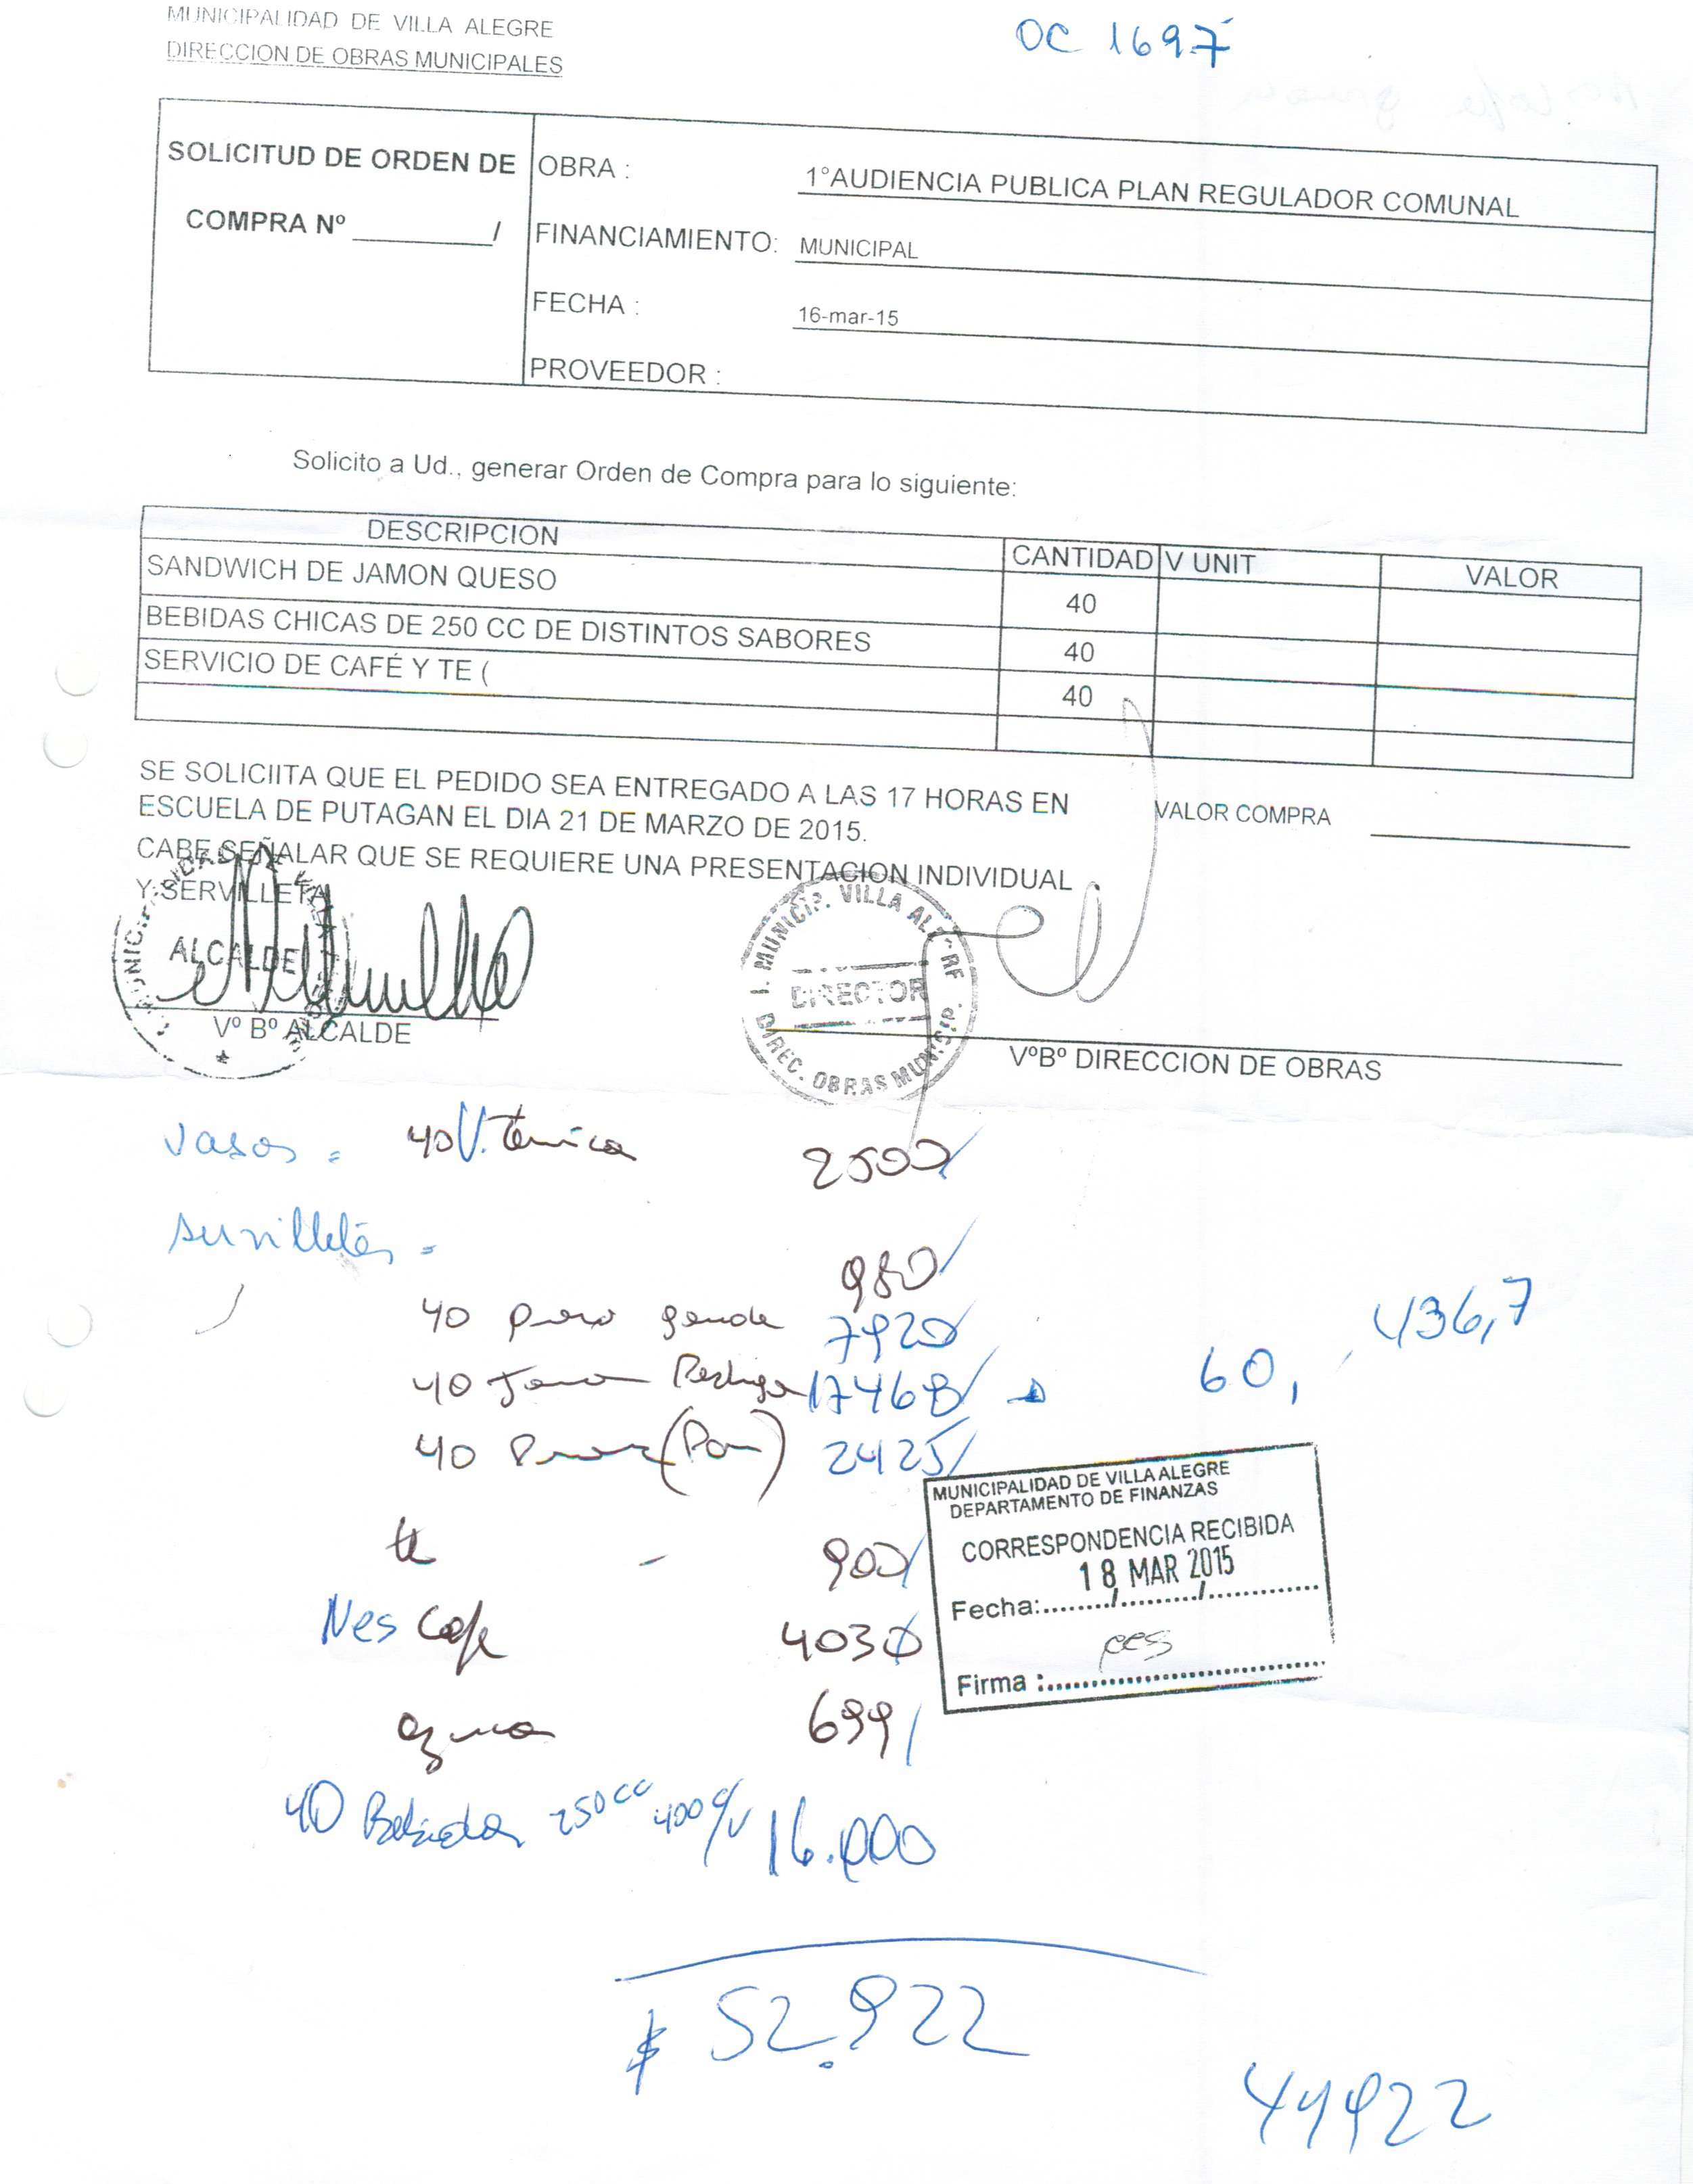 MUNICIPALIDAD DE VILLA ALEGRE
DIRECCION DE OBRAS MUNICIPALES
OC 1697
SOLICITUD DE ORDEN DE
COMPRA Nº ________/
OBRA : 1°AUDIENCIA PUBLICA PLAN REGULADOR COMUNAL
FINANCIAMIENTO: MUNICIPAL
FECHA : 16-mar-15
PROVEEDOR :
Solicito a Ud., generar Orden de Compra para lo siguiente:
DESCRIPCION CANTIDAD V UNIT VALOR
SANDWICH DE JAMON QUESO 40
BEBIDAS CHICAS DE 250 CC DE DISTINTOS SABORES 40
SERVICIO DE CAFÉ Y TE ( 40
SE SOLICIITA QUE EL PEDIDO SEA ENTREGADO A LAS 17 HORAS EN
ESCUELA DE PUTAGAN EL DIA 21 DE MARZO DE 2015.
VALOR COMPRA
CABE SEÑALAR QUE SE REQUIERE UNA PRESENTACION INDIVIDUAL
Y SERVILLETA
ALCALDE
Vº Bº ALCALDE
I. MUNICIP. VILLA ALEGRE
DIRECTOR
DIREC. OBRAS MUNICIP.
VºBº DIRECCION DE OBRAS
Vasos = 40 V. Termica 2500
Servilletas = 980
40 grande 7920
436,7
40 17468 60,
40 (Pan) 2425
te - 900
Nes Cafe 4030
azucar 699
MUNICIPALIDAD DE VILLA ALEGRE
DEPARTAMENTO DE FINANZAS
CORRESPONDENCIA RECIBIDA
18 MAR 2015
Fecha:......../........./..............
Firma :..................................
40 Bebidas 250 cc 400 c/u 16.000
$ 52.922
44922